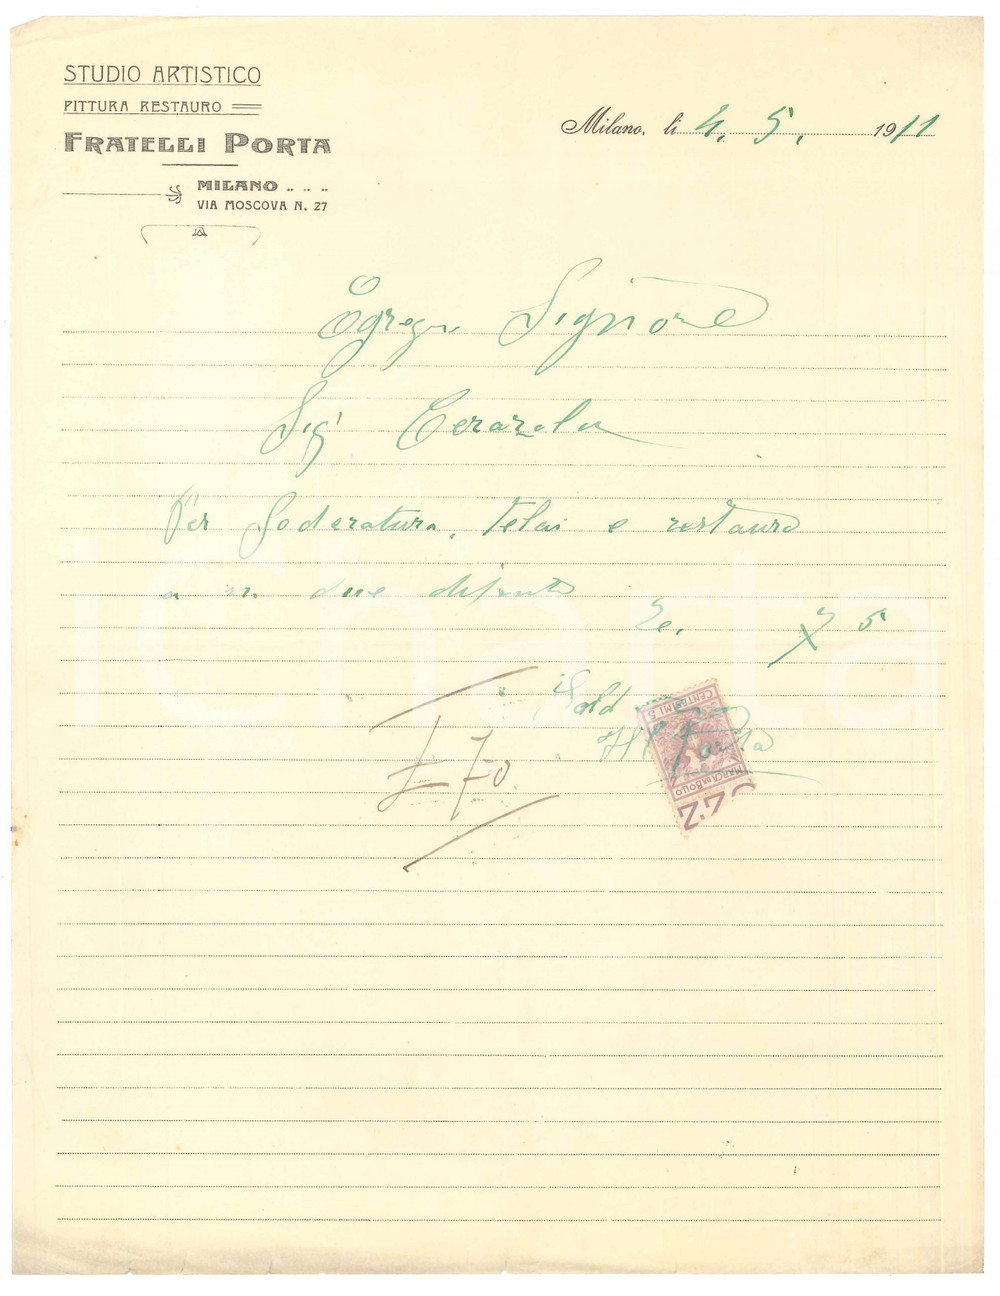 STUDIO ARTISTICO
PITTURA RESTAURO
FRATELLI PORTA
MILANO . . .
VIA MOSCOVA N. 27
Milano, li 4. 5. 1911
Egregio Signore
Sig
Per foderatura, Telai e restauro
a n. due dipinti
Le. 75
Sald
Porta
CENTESIMI 5
MARCA DA BOLLO
£ 70
iCharta